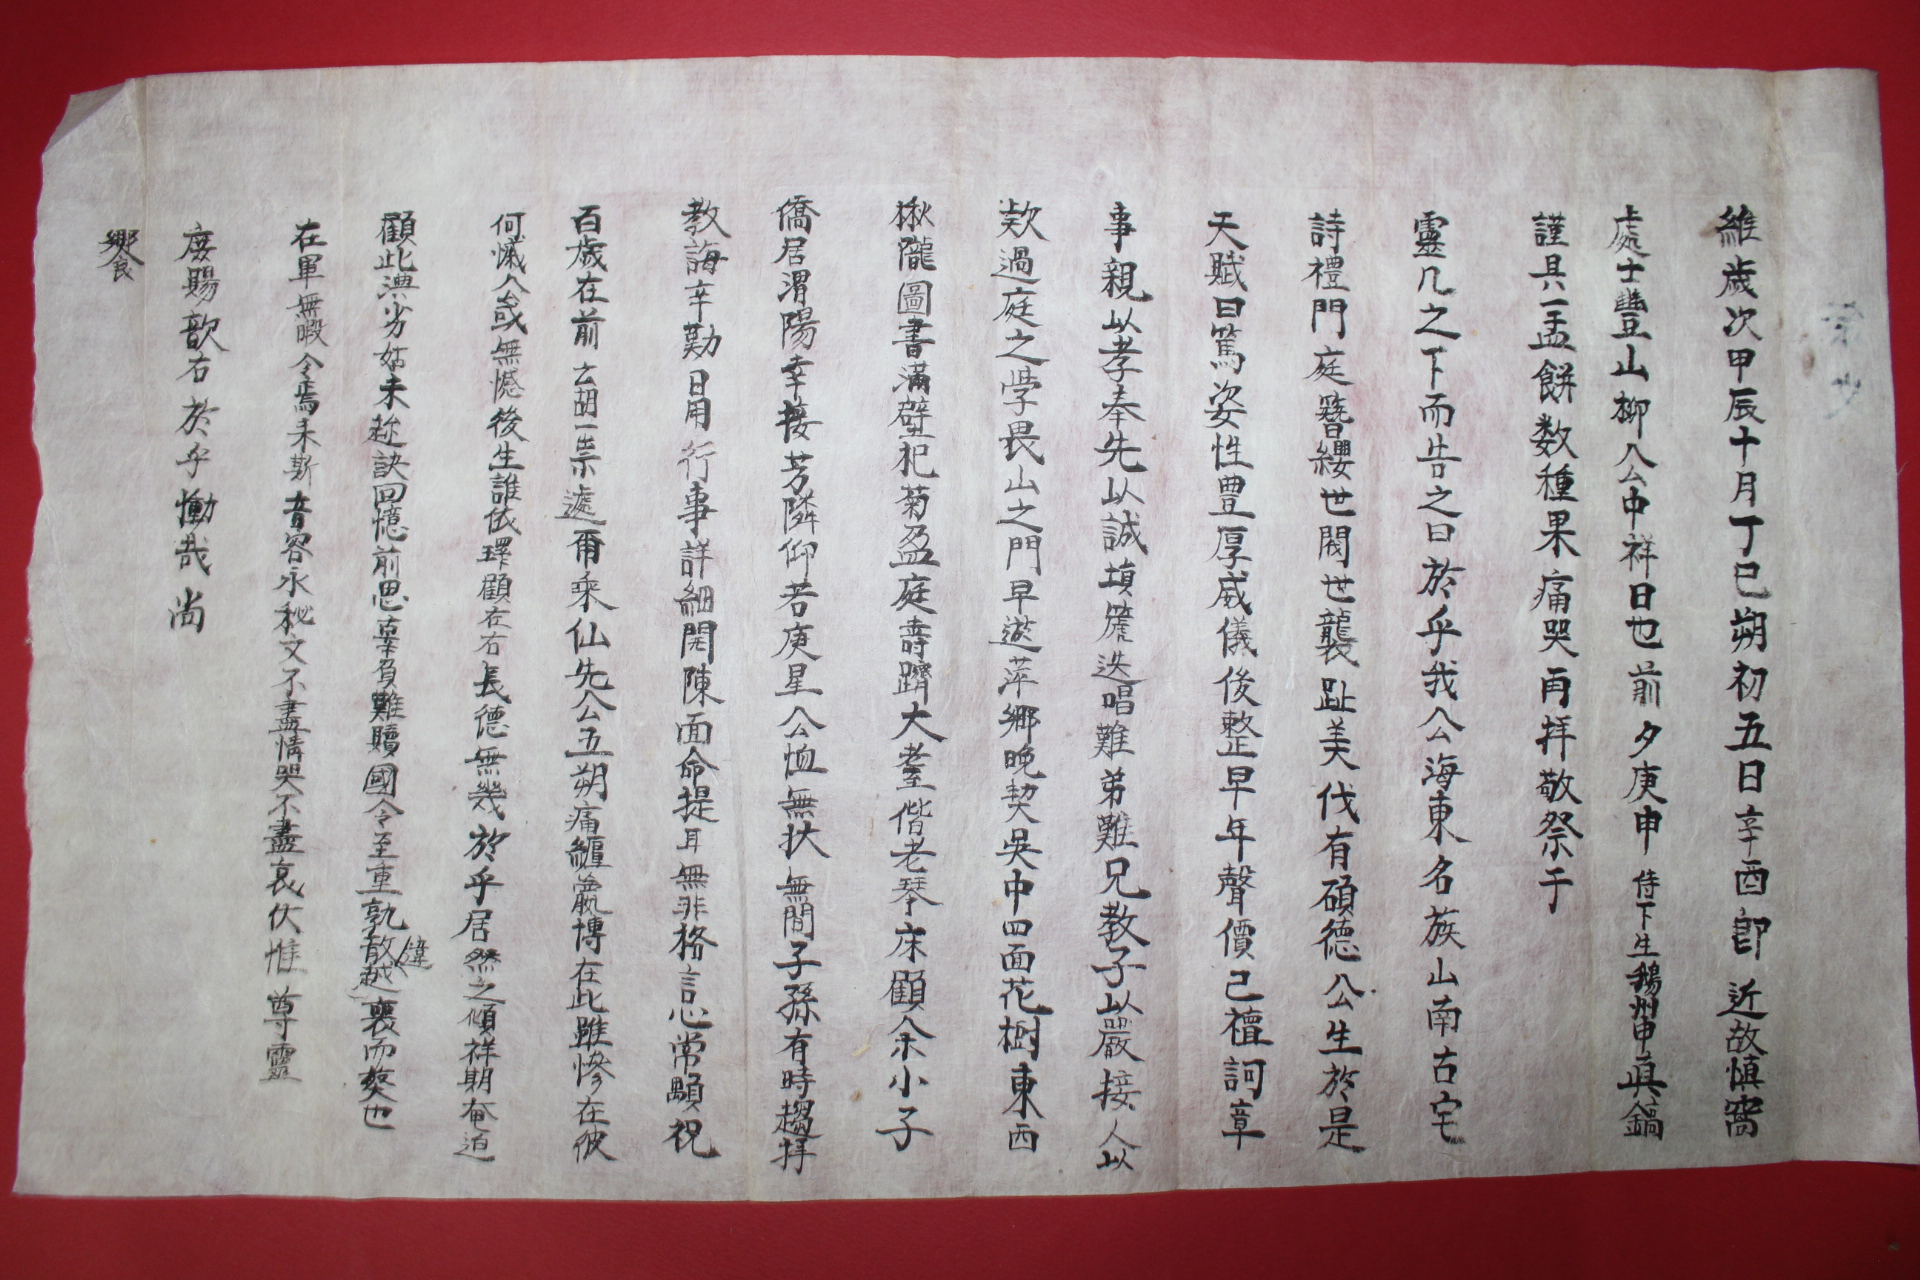 維歲次甲辰十月丁巳朔初五日辛酉即近故愼窩
處士豊山柳公中祥日也前夕庚申侍下生鵝州申眞鎬
謹具一盂餠数種果痛哭再拜敬祭于
靈几之下而告之曰於乎我公海東名族山南古宅
詩禮門庭簪纓世閥世襲趾美伐有碩德公生於是
天賦曰篤姿性豊厚威儀俊整早年聲價已擅詞章
事親以孝奉先以誠塤篪迭唱難弟難兄敎子以嚴接人以
欵過庭之學畏山之門早遊萍鄕晩契吳中四面花樹東西
楸隴圖書滿壁杞菊盈庭壽躋大耋偕老琴床顧余小子
僑居渭陽幸接芳隣仰若庚星公恤無扶無間子孫有時趨拜
敎誨辛勤日用行事詳細開陳面命提耳無非格言心常顒祝
百歲在前云胡一祟遽爾乘仙先公五朔痛纏嬴博在此雖慘在彼
何慽人或無憾後生誰依環顧在右長德無幾於乎居然之傾祥期奄迫
顧此淟劣姑未趂訣回憶前思辜負難贖國令至重孰敢越違襄而葬也
在軍無暇今焉未斯音容永秘文不盡情哭不盡哀伏惟尊靈
庶賜歆右於乎慟哉尙
饗